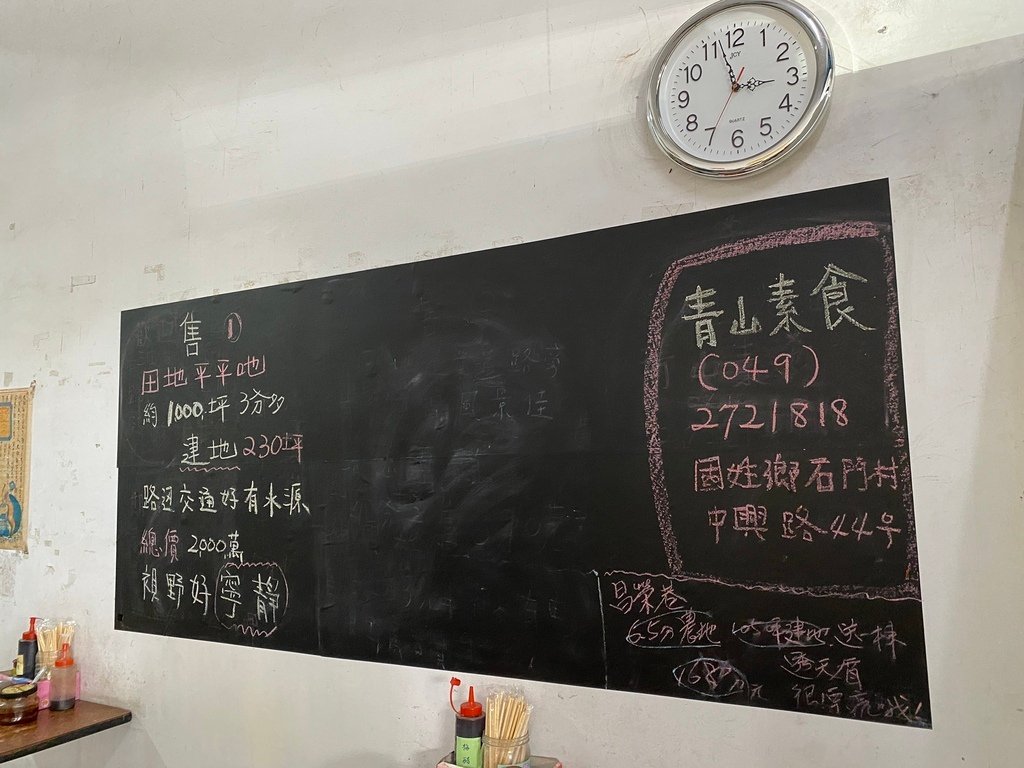 12
1
2
3
4
5
6
7
8
9
10
11
JCY
QUARTZ
售 1
田地平平吔
約 1000 坪 3分多
建地 230坪
路迅交通好有水源
總價 2000萬
視野好寧靜
青山素食
(049)
2721818
國姓鄉石門村
中興路44号
昌榮巷
6.5分農地 105坪建地 送一棟
透天厝
168万元
很漂亮哦!